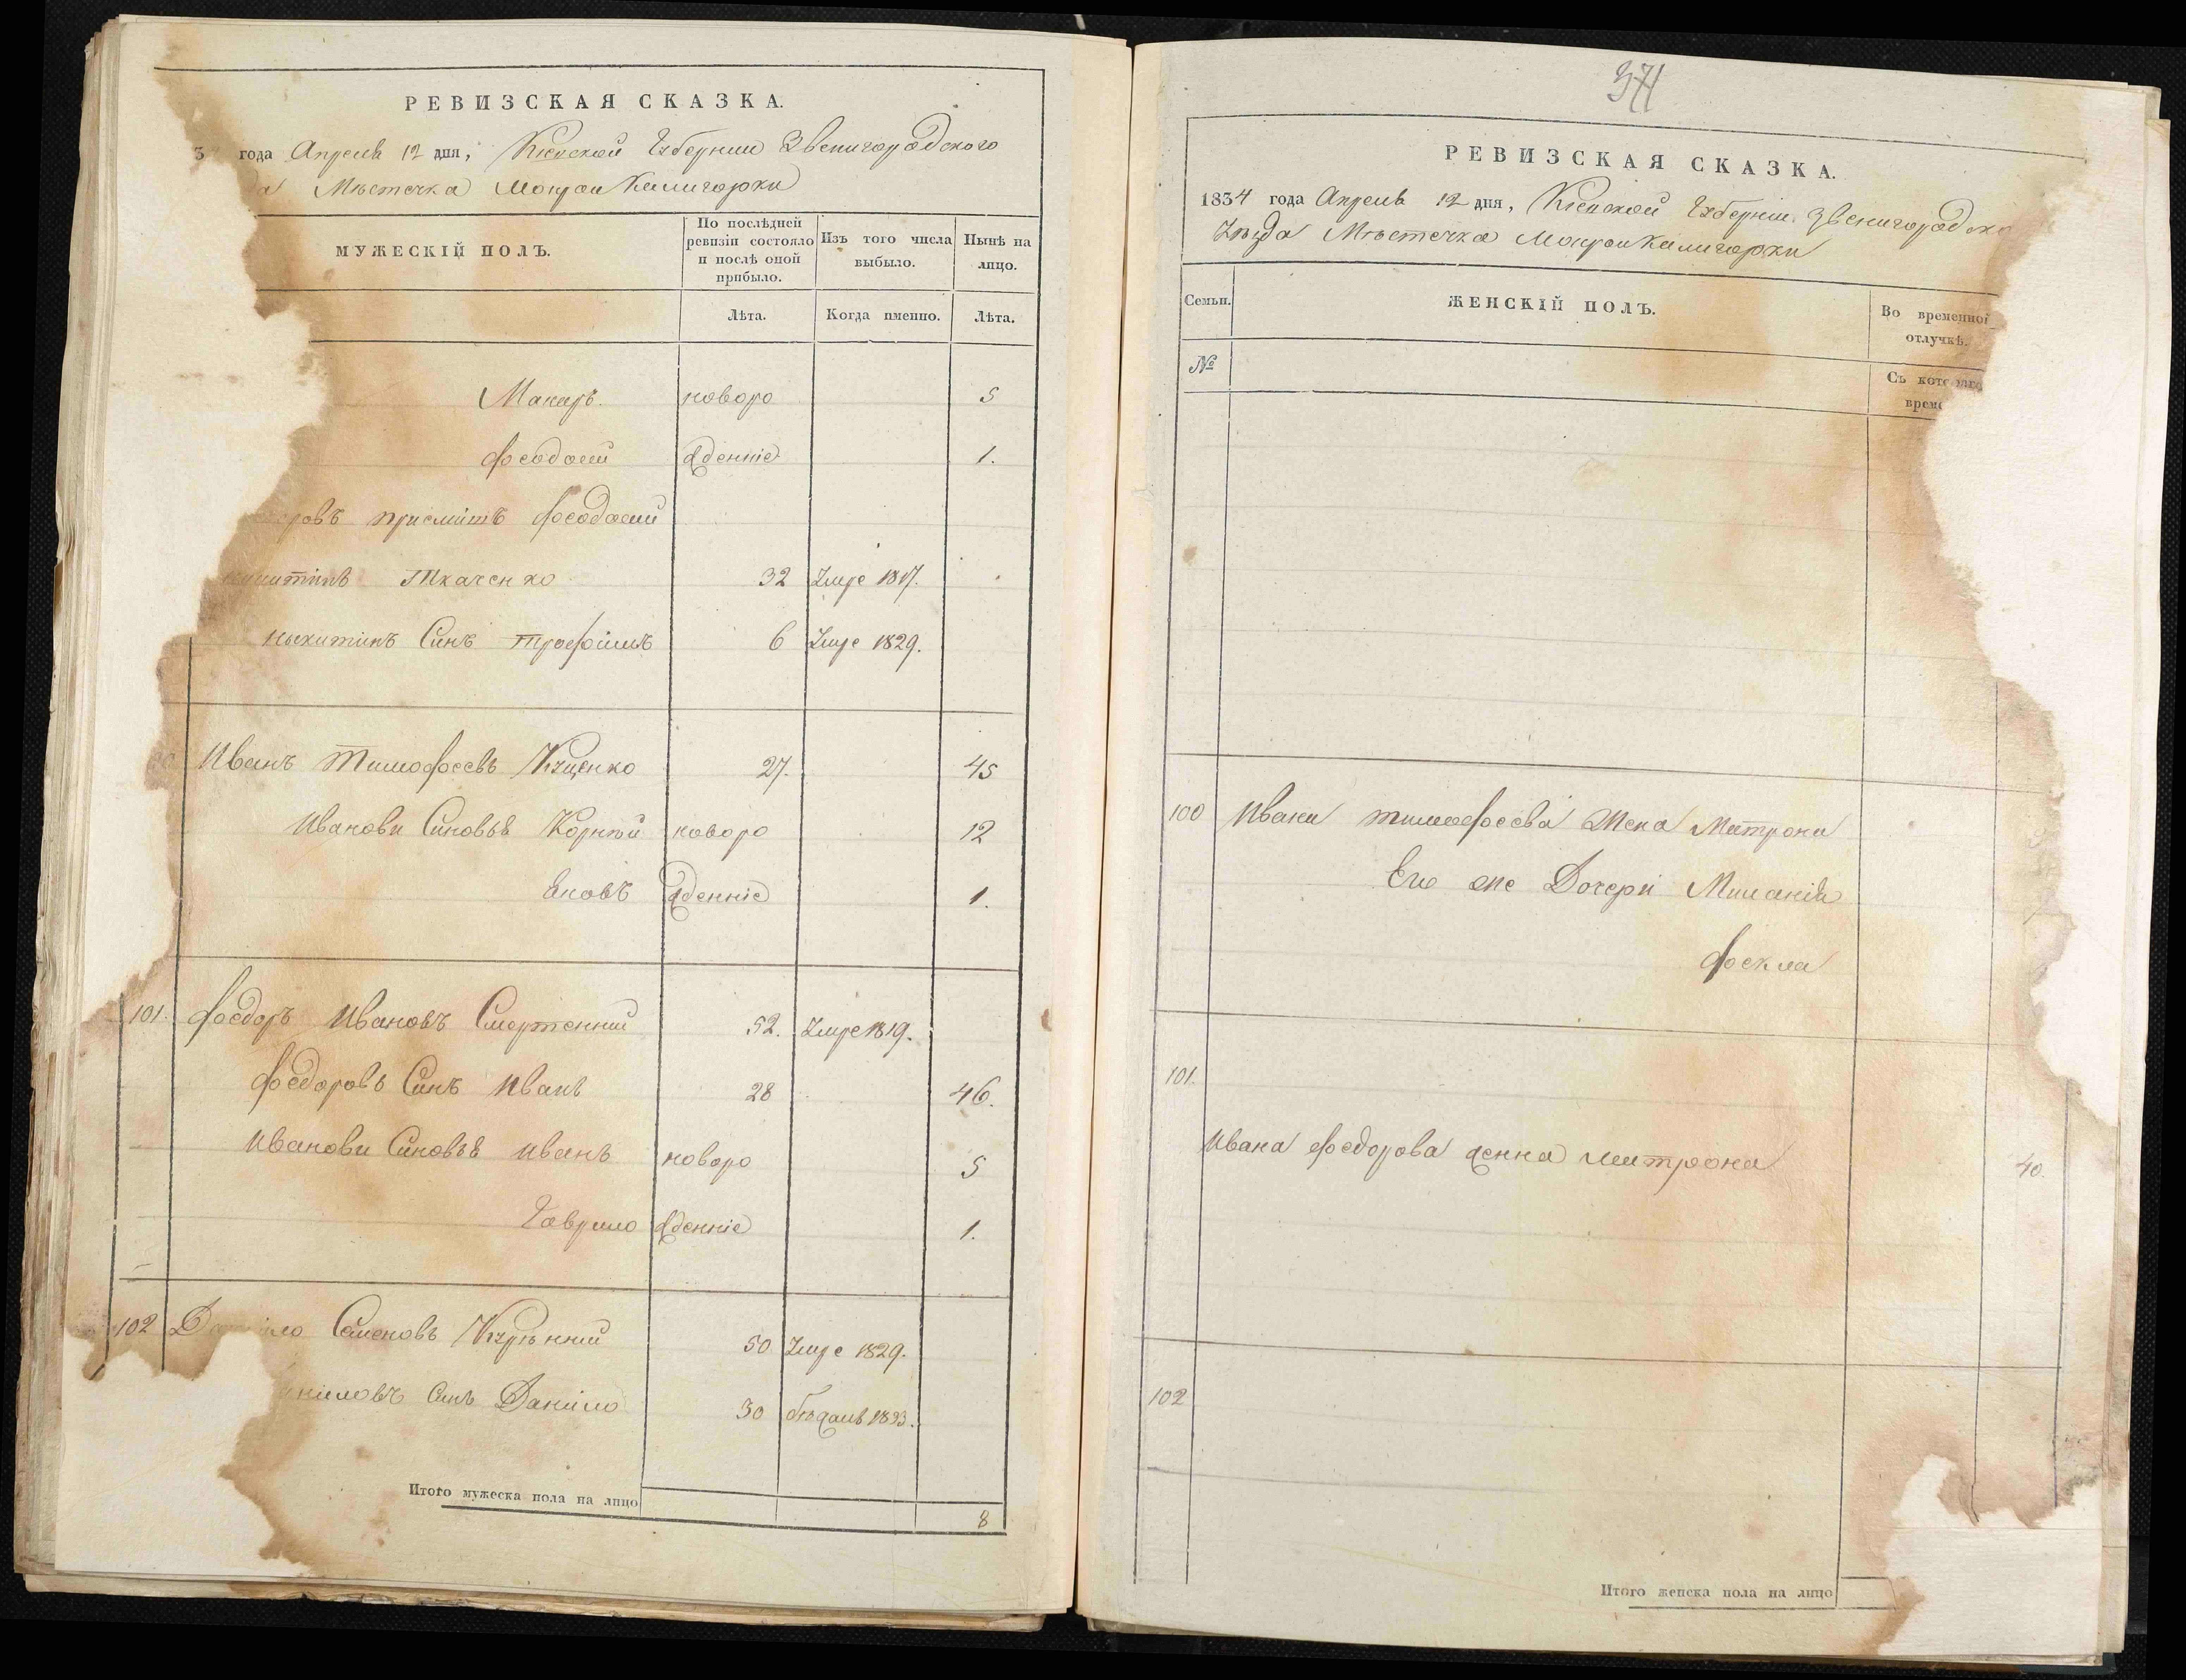 РЕВИЗСКАЯ СКАЗКА.
года Апреля 12 дня, Кіевской Губернии Звенигородского
Местечка Мокрой Калигорки
МУЖЕСКІЙ ПОЛЪ.
По послѣдней ревизіи состояло и послѣ оной прибыло.
Изъ того числа выбыло.
Нынѣ на лицо.
Лѣта.
Когда именно.
Лѣта.
Макаръ. новоро 5
Феодосий жденніе 1.
Феодосий
Ткаченко 32 Умре 1817.
Никитинъ Синъ Трофимъ 6 Умре 1829.
Иванъ Тимофеевъ Куценко 27. 45
Иванови Синовья Корній новоро 12
Яковъ жденніе 1.
101. Федоръ Ивановъ Смертенний 52. Умре 1819.
Федоровъ Синъ Иванъ 28 46.
Иванови Синовья Иванъ новоро 5
Гаврило жденніе 1.
102 Семеновъ 50 Умре 1829.
Синъ Данило 30
Итого мужеска пола на лицо 8
371
РЕВИЗСКАЯ СКАЗКА.
1834 года Апреля 12 дня, Кіевской Губерніи Звенигородско
Уѣзда Мѣстечка Мокрой Калигорки
Семьи.
ЖЕНСКІЙ ПОЛЪ.
Во временной отлучкѣ.
№
Съ
100 Ивана Тимофеева Жена Матрона
Его же Дочери Миланія
Фекла
101.
Ивана Федорова женна Матрона 40.
102
Итого женска пола на лицо